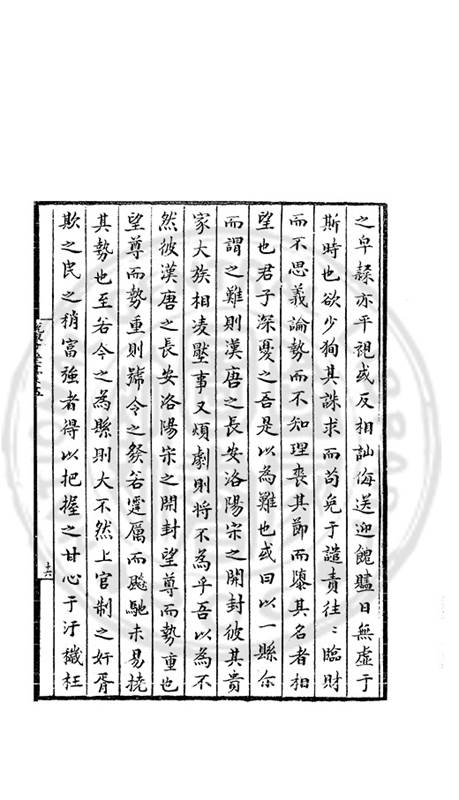 之皁隸亦平視或反相訕侮送迎餽贐日無虛于
斯時也欲少狥其誅求而茍免于譴責往〻臨財
而不思義論勢而不知理喪其節而隳其名者相
望也君子深憂之吾是以為難也或曰以一縣令
而謂之難則漢唐之長安洛陽宋之開封彼其貴
家大族相凌壓事又煩劇則將不為乎吾以為不
然彼漢唐之長安洛陽宋之開封望尊而勢重也
望尊而勢重則號令之發若霆厲而飈馳未易撓
其勢也至若今之為縣則大不然上官制之奸胥
欺之民之稍富強者得以把握之甘心于汙穢枉
十六